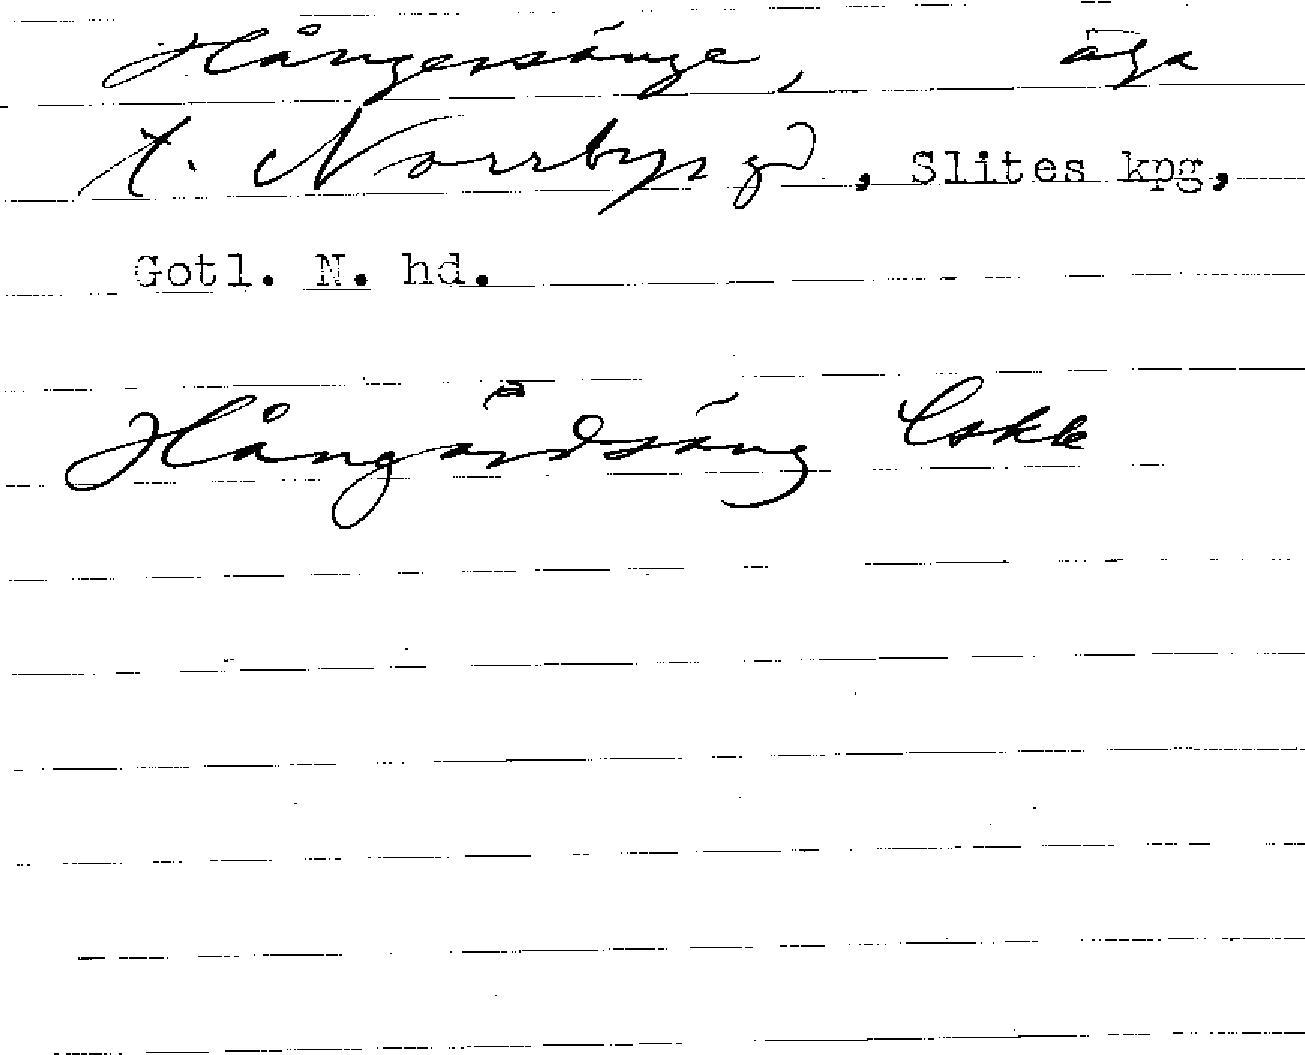 Hångersänge, äga
t. Norrbys gd, Slites kpg,
Gotl. N. hd.
Hångårdsäng Cskk